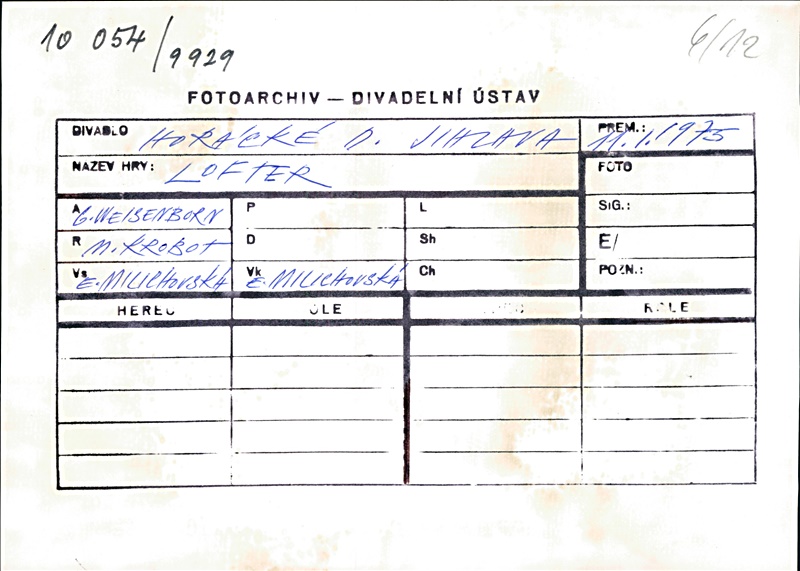 10 054/9929
6/12
FOTOARCHIV — DIVADELNÍ ÚSTAV
DIVADLO HORÁCKÉ D. JIHLAVA PREM.: 11.1.1975
NAZEV HRY: LOFTER FOTO
A G.WEISENBORN P L SIG.:
R M.KROBOT D Sh E/
Vs E.MILICHOVSKÁ Vk E.MILICHOVSKÁ Ch POZN.:
HEREC ROLE